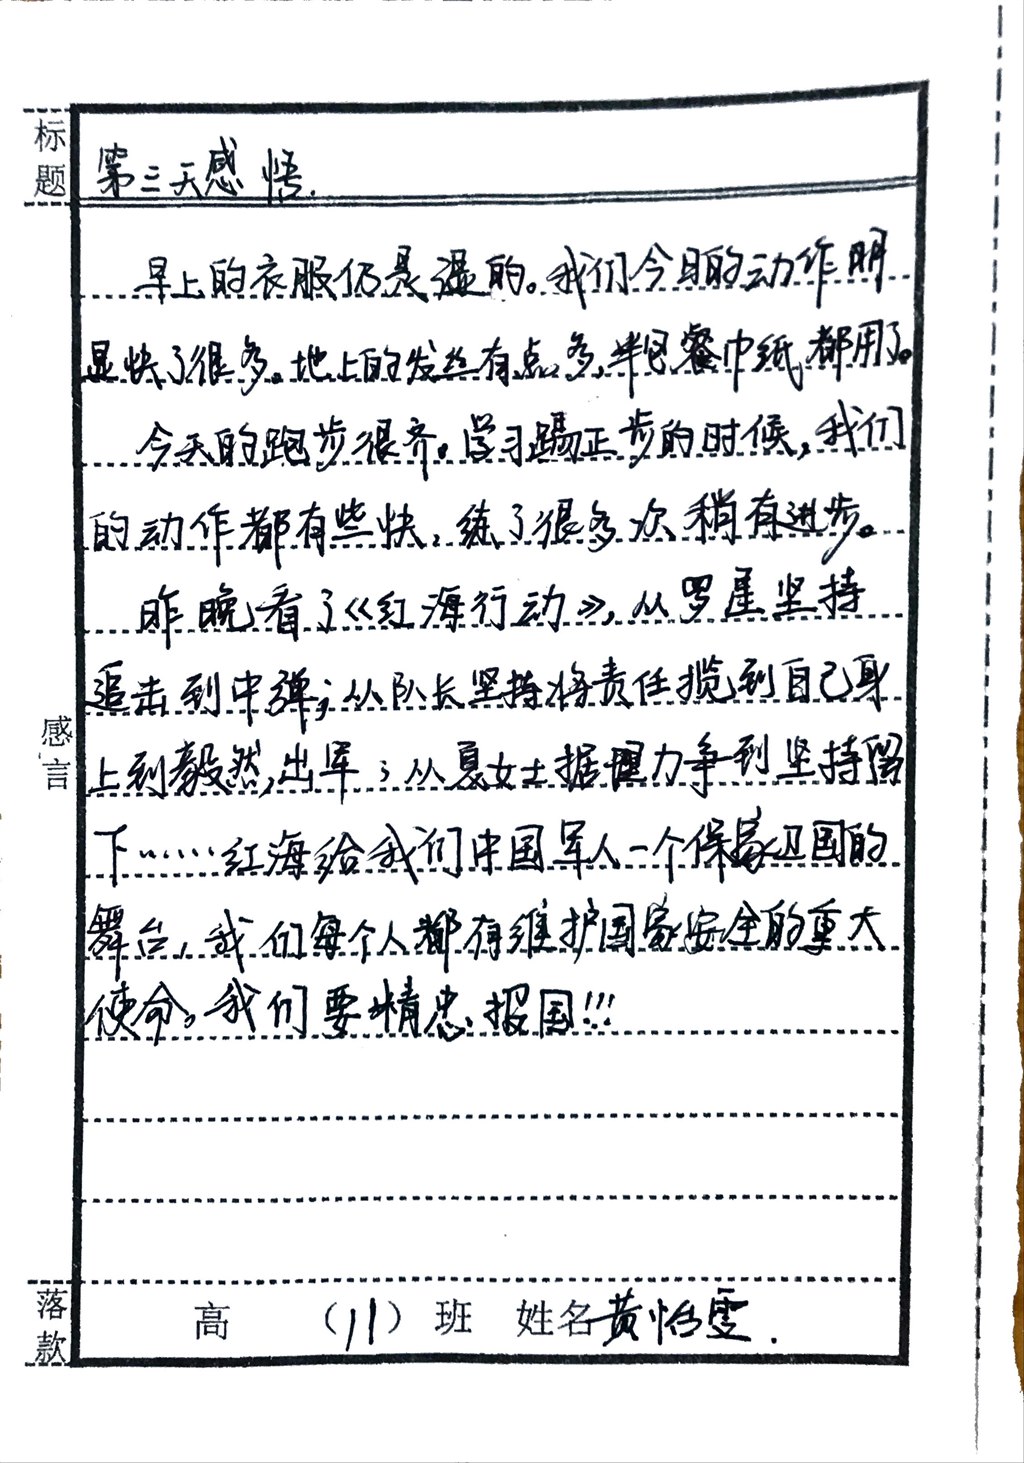 标题
第三天感悟.
早上的衣服仍是湿的。我们今日的动作明
显快了很多。地上的发丝有点多,半包餐巾纸都用了。
今天的跑步很齐。学习踢正步的时候,我们
的动作都有些快,练了很多次稍有进步。
昨晚看了《红海行动》,从罗星坚持
追击到中弹;从队长坚持将责任揽到自己身
上到毅然出军;从夏女士据理力争到坚持留
下……红海给我们中国军人一个保家卫国的
舞台,我们每个人都有维护国家安全的重大
使命。我们要精忠报国!!!
感言
落款
高 (11)班 姓名黄怡雯.